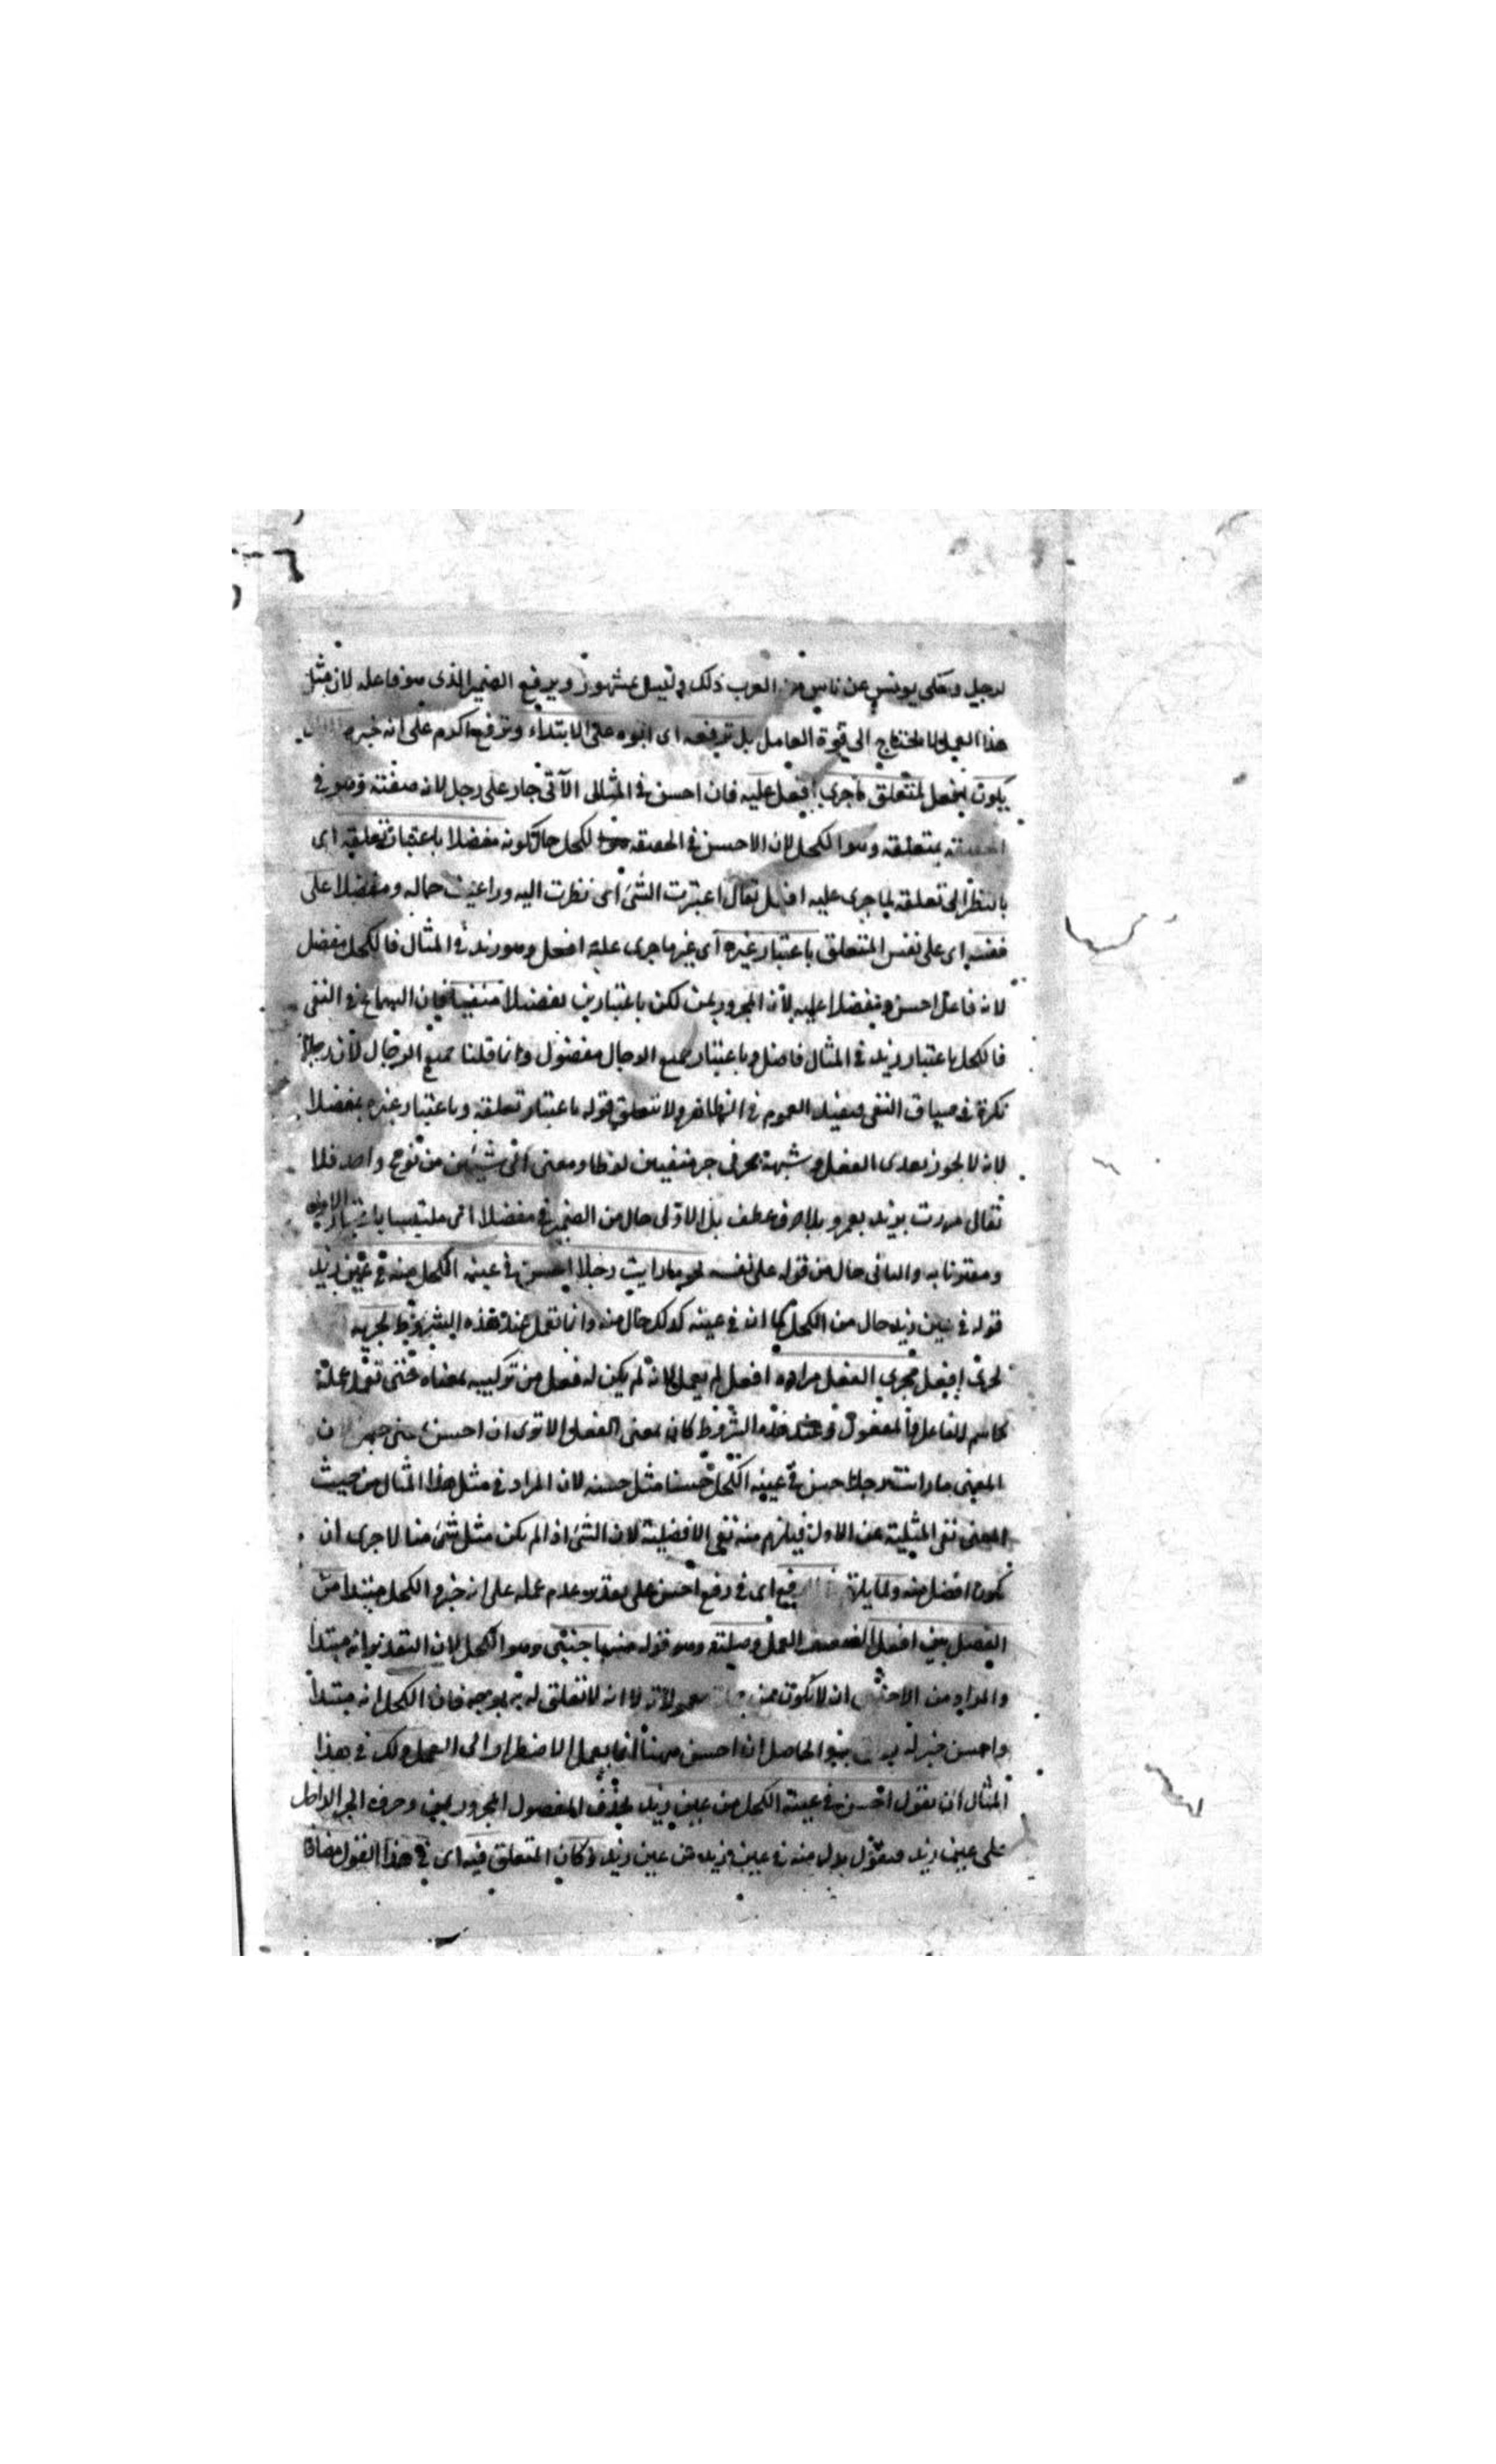 لرجل وحكى يونس عن ناس من العرب ذلك وليس بمشهور ويرفع الضمير الذي هو فاعله لان مثل
هذا العمل لا يحتاج الى قوة العامل بل ترفعه اى ابوه على الابتداء وترفع اكرم على انه خبره
يكون افعل لمتعلق ما جرى افعل عليه فان احسن في المثال الآتى جار على رجل لانه صفته وهو في
الحقيقة لمتعلقه وهو الكحل لان الاحسن في الحقيقة هو الكحل حال كونه مفضلا باعتبار تعلقه اى
بالنظر الى تعلقه بما جرى عليه افعل يقال اعتبرت الشئ اى نظرت اليه وراعيت حاله ومفضلا على
نفسه اى على نفس المتعلق باعتبار غيره اى غير ما جرى عليه افعل وهو زيد في المثال فالكحل مفضل
لانه فاعل احسن ومفضلا عليه لأن المجرور بمن لكن باعتبارين تفضيلا منفيا فان السماع في النفى
فالكحل باعتبار زيد في المثال فاضل وباعتبار جميع الرجال مفضول وانما قلنا جميع الرجال لان رجلا
نكرة في سياق النفى فيفيد العموم في الظاهر ولا يتعلق قوله باعتبار تعلقه وباعتبار غيره بمفضلا
لانه لا يجوز تعدى الفعل وشبهه بحرفى جر متفقين لفظا ومعنى الى شيئين من نوع واحد فلا
تقال مررت بزيد بعمرو بلا حرف عطف بل الاول حال من الضمير في مفضلا اى ملتبسا باعتبار الاول
ومقترنا به والثانى حال من قوله على نفسه نحو ما رايت رجلا احسن في عينه الكحل منه في عين زيد
قوله في عين زيد حال من الكحل كما ان في عينه كذلك حال منه وانما تعمل عند هذه الشروط لجريه
لجرى افعل مجرى الفعل افعل لم يعمل لانه لم يكن له فعل من تركيبه بمعناه حتى تعمل عمله
كاسم الفاعل والمفعول وعند هذه الشروط كان بمعنى الفعل الا ترى ان احسن بمعنى حسن
المعنى ما رايت رجلا حسن في عينه الكحل حسنا مثل حسنه لان المراد في مثل هذا المثال من حيث
المعنى نفى المثلية عن الاول فيلزم منه نفى الافضلية لان الشئ اذا لم يكن مثل شئ منا لا جرى ان
يكون افضل منه ولما يلزم اى في رفع احسن على تقدير عدم عمله على انه خبر والكحل مبتدا من
الفصل بين افعل الضعيف العمل وصلته وهو قوله منه باجنبى وهو الكحل لان التقدير انه مبتدا
والمراد من الاجنبى ان لا يكون من معمولاته لا انه لا تعلق له به بوجه فان الكحل انه مبتدا
واحسن خبر له والحاصل ان احسن ههنا انما يعمل للاضطرار الى العمل ولك في هذا
المثال ان تقول احسن في عينه الكحل من عين زيد بحذف المفضول المجرور بمن وحرف الجر الداخل
على عين زيد فتقول بدل منه في عين زيد من عين زيد وكان المتعلق فيه اى في هذا القول مضافا